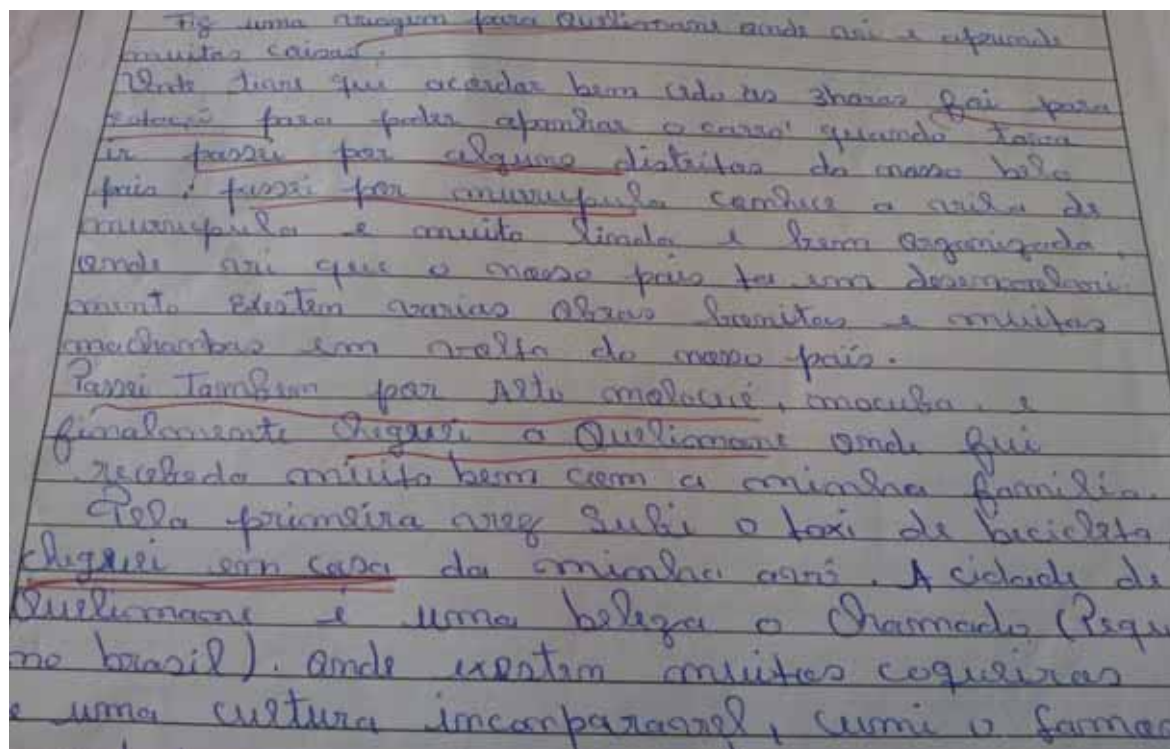 Fiz uma viagem para Quelimane onde vi e aprende
muitas coisas.
tive que acordar bem cedo as 3horas fui para
estação para poder apanhar o carro quando tava
ir passei por alguns distritos do nosso belo
pais, passei por murrupula conhece a vila de
murrupula e muito linda e bem organizada,
onde vi que o nosso pais ta em desenvolvi
mento Existem varias Obras bonitas e muitas
machambas em volta do nosso país.
Passei Tambem por Alto molocué, mocuba, e
finalmente cheguei a Quelimane onde fui
recebeda muito bem com a minha familia.
Pela primeira vez Subi o taxi de bicicleta
cheguei em casa da minha avó. A cidade de
Quelimane é uma beleza o Chamado (Pequ
no brasil). onde existem muitos coqueiros
e uma cultura incomparavel, cumi o famo